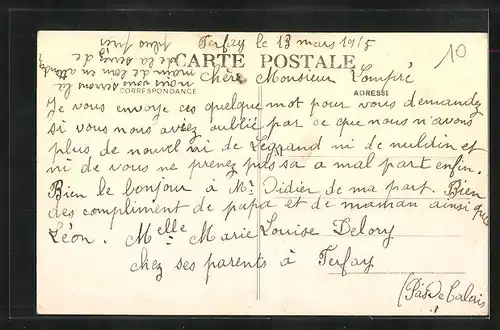 Ferfay le 13 mars 1915
10
CARTE POSTALE
CORRESPONDANCE
ADRESSE
Chère Monsieur Lompré
Je vous envoye ces quelque mot pour vous demandez
si vous nous aviez oublié par ce que nous n'avons
plus de nouvel ni de Legrand ni de nuldin et
ni de vous ne prenez pas sa a mal part enfin.
Bien le bonjour à Mr Didier de ma part. Bien
des compliment de papa et de maman ainsi que
Léon. Melle Marie Louise Delory
chez ses parents à Ferfay
(Pas de Calais
nous vous serrons la
main de loin en attendant
de la serrez de
plus près